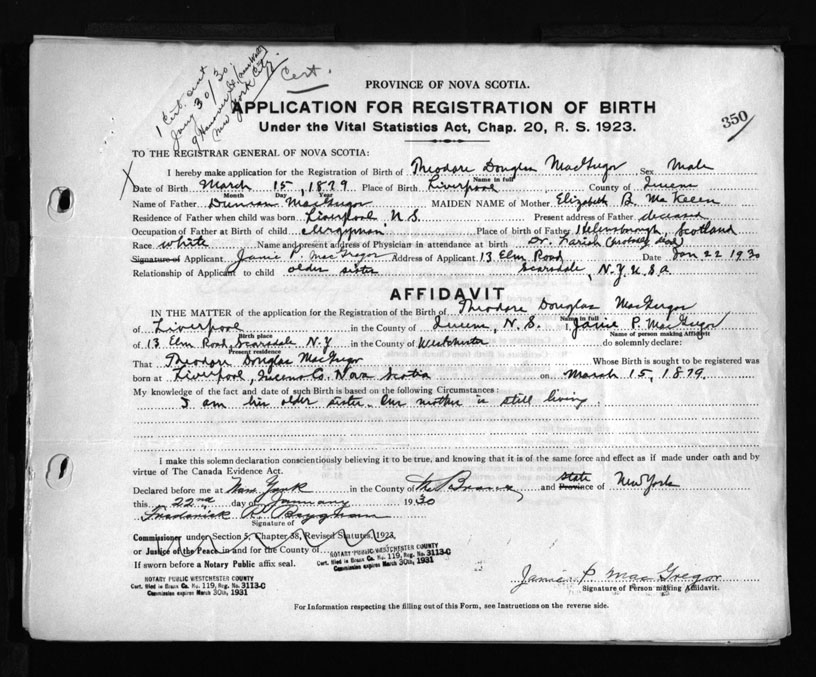 1 Cert. sent
Jany 30/30.
9 Hanover St
New York City.
Cert.
350
PROVINCE OF NOVA SCOTIA.
APPLICATION FOR REGISTRATION OF BIRTH
Under the Vital Statistics Act, Chap. 20, R. S. 1923.
TO THE REGISTRAR GENERAL OF NOVA SCOTIA:
I hereby make application for the Registration of Birth of Theodore Douglas MacGregor Sex Male
Name in full
X Date of Birth March 15, 1879 Place of Birth Liverpool County of Queens
Day Year
Name of Father Duncan MacGregor MAIDEN NAME of Mother Elizabeth B. MacKeen
Residence of Father when child was born Liverpool N S. Present address of Father deceased
Occupation of Father at Birth of child clergyman Place of birth of Father Helensborough, Scotland
Race white Name and present address of Physician in attendance at birth Dr. Farish (probably dead)
Signature of Applicant Janie P. MacGregor Address of Applicant 13 Elm Road Date Jan 22 1930
Relationship of Applicant to child older sister Scarsdale, N.Y. U.S.A
AFFIDAVIT
IN THE MATTER of the application for the Registration of the Birth of Theodore Douglas MacGregor
Name in full
of Liverpool in the County of Queens, N. S. I, Janie P. MacGregor
Birth place Name of person making Affidavit
of 13 Elm Road, Scarsdale N.Y in the County of Westchester do solemnly declare:
Present residence
That Theodore Douglas MacGregor Whose Birth is sought to be registered was
born at Liverpool, Queens Co. Nova Scotia on March 15, 1879.
My knowledge of the fact and date of such Birth is based on the following Circumstances:
I am his older sister. Our mother is still living.
I make this solemn declaration conscientiously believing it to be true, and knowing that it is of the same force and effect as if made under oath and by
virtue of The Canada Evidence Act.
Declared before me at New York in the County of the Bronx and Province State of New York
this 22nd day of January 1930
Frederick R.
Signature of
Commissioner under Section 5, Chapter 38, Revised Statutes, 1923,
or Justice of the Peace in and for the County of
If sworn before a Notary Public affix seal.
NOTARY PUBLIC WESTCHESTER COUNTY
Cert. filed in Bronx Co. No. 119, Reg. No. 3113-C
Commission expires March 30th, 1931
NOTARY PUBLIC WESTCHESTER COUNTY
Cert. filed in Bronx Co. No. 119, Reg. No. 3113-C
Commission expires March 30th, 1931
Janie P. MacGregor
Signature of Person making Affidavit.
For Information respecting the filling out of this Form, see Instructions on the reverse side.